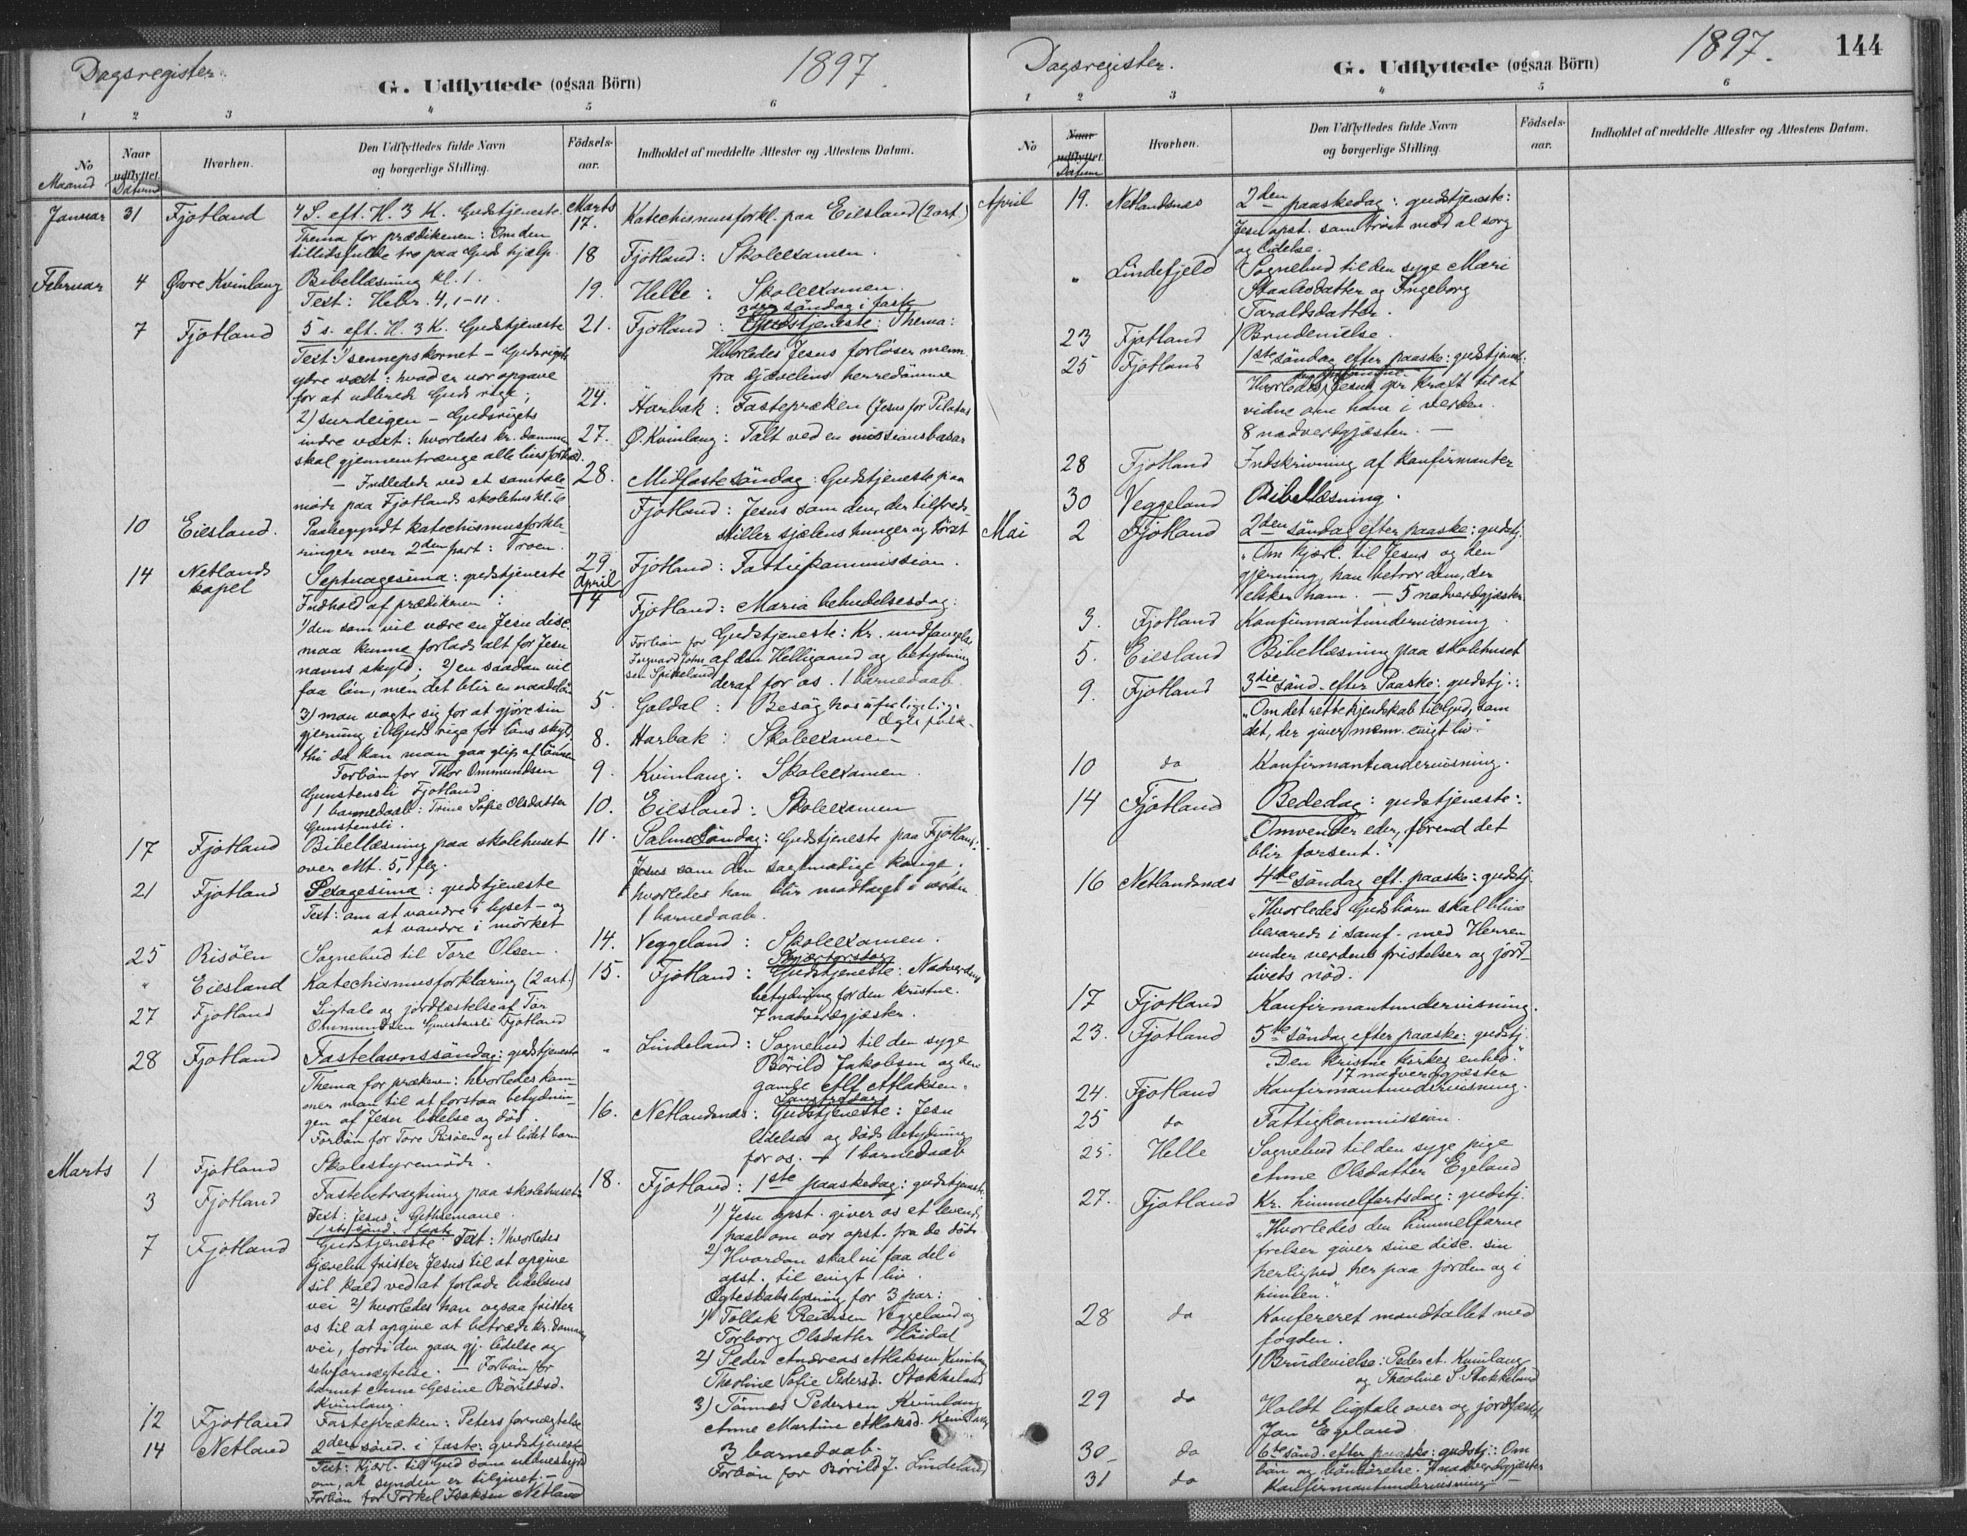 Dagsregister.
G. Udflyttede (ogsaa Börn)
1897
1 2 3 4 5 6
No
Maaned
Naar
udflyttet.
Datum
Hvorhen.
Den Udflyttedes fulde Navn
og borgerlige Stilling.
Födsels-
aar.
Indholdet af meddelte Attester og Attestens Datum.
Januar 31 Fjotland 4 S. eft. H. 3 K. Gudstjeneste.
Thema for prædikenen: Om den
tillidsfulde tro paa Guds hjælp.
Februar 4 Øvre Kvinlaug Bibellæsning kl. 1.
Text: Hebr. 4, 1-11.
7 Fjotland 5 s. eft. H. 3 K. Gudstjeneste
Text: 1) sennepskornet – Gudsrigets
ydre vækst: hvad er vor opgave
for at udbrede Guds rige;
2) surdeigen – Gudsrigets
indre vext: hvorledes kr. dommen
skal gjennemtrænge alle livsforhold.
– Indledede ved et samtale-
møde paa Fjotlands skolehus kl. 6
10 Eiesland. Paabegyndt katechismusforkla-
ringer over 2den part: Troen.
14 Netlands
kapel
Septuagesima: gudstjeneste
Indhold af prædikenen:
1) den som vil være en Jesu disc.
maa kunne forlade alt for Jesu
navns skyld; 2) en saadan vil
faa løn, men det blir en naadeløn
3) man vogte sig for at gjøre sin
gjerning i Guds rige for löns skyld
thi da kan man gaa glip af lönnen
Forbön for Thor Ommundsen
Gunstensli Fjotland.
1 barnedaab: Trine Sofie Olsdatter
Gunstensli.
17 Fjotland Bibellæsning paa skolehuset
over Mt. 5, 1 flg.
21 Fjotland Sexagesima: gudstjeneste
Text: om at vandre i lyset – og
at vandre i mørket
25 Risöen Sognebud til Tore Olsen.
" Eiesland Katechismusforklaring (2 art.)
27 Fjotland Ligtale og jordfæstelse af Tor
Ommundsen Gunstensli Fjotland
28 Fjotland Fastelavnssöndag: gudstjeneste
Thema for præken: hvorledes kom-
mer man til at forstaa betydnin-
gen af Jesu lidelse og död.
Forbön for Tore Risöen og et lidet barn
Marts 1 Fjotland Skolestyremöde.
3 Fjotland Fastebetragtning paa skolehuset
Text: Jesus i Gethsemane.
7 Fjotland 1ste sönd. i faste
Gudstjeneste Text: 1) hvorledes
djævelen frister Jesus til at opgive
sit kald ved at forlade lidelsens
vei 2) hvorledes han ogsaa frister
os til at opgive at betræde kr. dommens
vei, fordi den gaar gj. lidelse og
selvfornægtelse. Forbön for
barnet Anne Gesine Börildsd.
Kvinlaug.
12 Fjotland Fastepræken: Peters fornægtelse
14 Netland 2den sönd. i faste: gudstjeneste
Text: Kjærl. til Gud som vidnesbyrd
om, at synden er tilgivet. –
Forbön for Torkel Isaksen Netland
Marts
17. Katechismusforkl. paa Eiesland (2 art.)
18 Fjotland: Skoleexamen.
19. Helle: Skoleexamen.
3die söndag i faste
21. Fjotland: Gudstjeneste: Thema:
Hvorledes Jesus forløser menn.
fra djævelens herredömme
24. Harbak: Fastepræken (Jesus for Pilatus
27. Ø. Kvinlaug: Talt ved en missionsbasar
28. Midfastesöndag: Gudstjeneste paa
Fjotland: Jesus som den, der tilfreds-
stiller sjælens hunger og törst
29. Fjotland: Fattigkommission.
April
14 Fjotland: Maria bebudelsesdag:
Gudstjeneste: Kr. undfangelse
af den Helligaand og betydning
deraf for os. 1 barnedaab.
Forbön for
Ingvard John
sen Spikeland
5. Goldal: Besög hos
8. Harbak: Skoleexamen
9. Kvinlaug: Skoleexamen.
10. Eiesland: Skoleexamen
11. Palmesöndag: Gudstjeneste paa Fjotland:
Jesus som den sagtmodige konge;
hvorledes han blir modtaget i verden
1 barnedaab.
14. Veggeland: Skoleexamen.
Skjærtorsdag
15. Fjotland: Gudstjeneste: Nadverens
betydning for den kristne.
7 nadverdgjæster.
" Lindeland: Sognebud til den syge
Börild Jakobsen og den
gamle Alf Aslaksen.
Langfredag
16. Netlandsnes: Gudstjeneste: Jesu
lidelses og döds betydning
for os. – 1 barnedaab
18. Fjotland: 1ste paaskedag: gudstjeneste
1) Jesu opst. giver os et levende
haab om vor opst. fra de döde
2) Hvordan skal vi faa del i
opst. til evigt liv.
Egteskabslysning for 3 par:
1) Tollak Reiersen Veggeland og
Torborg Olsdatter Haidal
2) Peder Andreas Aslaksen Kvinlaug
Theoline Sofie Pedersd. Stakkeland
3) Tönnes Pedersen Kvinlaug
Anne Martine Aslaksd. Kvinlaug
3 barnedaab.
Forbön for Börild J. Lindeland
Dagsregister.
G. Udflyttede (ogsaa Börn)
1897.
144
1 2 3 4 5 6
No
Naar
udflyttet.
Datum
Hvorhen.
Den Udflyttedes fulde Navn
og borgerlige Stilling.
Födsels-
aar.
Indholdet af meddelte Attester og Attestens Datum.
April 19. Netlandsnes 2den paaskedag: gudstjeneste:
Jesu opst. som tröst mod al sorg
og lidelse.
" Lindefjeld Sognebud til den syge Mari
Staalesdatter og Ingeborg
Taraldsdatter.
23 Fjotland 1 Brudevielse.
25 Fjotland 1ste söndag efter paaske: gudstjenest:
Hvorledes Jesus gir kraft til at
vidne om ham i verden.
8 nadverdgjæster. –
28 Fjotland Indskrivning af konfirmanter
30 Veggeland Bibellæsning.
Mai 2 Fjotland 2den söndag efter paaske: gudstj.
"Om kjærl. til Jesus og den
gjerning, han betror dem, der
elsker ham. – 5 nadverdgjæster
3. Fjotland Konfirmantundervisning.
5. Eiesland Bibellæsning paa skolehuset
9. Fjotland 3die sönd. efter Paaske: gudstj.:
"Om det rette kjendskab til Gud, som
det, der giver menn. evigt liv."
10 do Konfirmantundervisning.
14 Fjotland Bededag: gudstjeneste:
"Omvender eder, förend det
blir forsent."
16 Netlandsnes 4de söndag eft. paaske: gudstj.
"Hvorledes Guds börn skal blive
bevarede i samf. med Herren
under verdens fristelser og jord-
livets nöd.
17 Fjotland Konfirmantundervisning.
23. Fjotland 5te söndag efter paaske: gudstj.
"Den kristne kirkes enhed."
17 nadverdgjæster
24. Fjotland Konfirmantundervisning.
25 do Fattigkommission.
25. Helle Sognebud til den syge pige
Anne Olsdatter Egeland
27. Fjotland Kr. himmelfartsdag: gudstj.
"Hvorledes den himmelfarne
frelser giver sine disc. sin
herlighed her paa jorden og i
himlen."
28 do Konfereret mandtallet med
fogden.
1 Brudevielse: Peder A. Kvinlaug
og Theoline S. Stakkeland
29 do Holdt ligtale over og jordfæstet
Jan Egeland
30 do 6te sönd. efter paaske: gudstj.: Om
bön og bönhörelse. 7 nadverdgjæster
31 do Konfirmantundervisning –